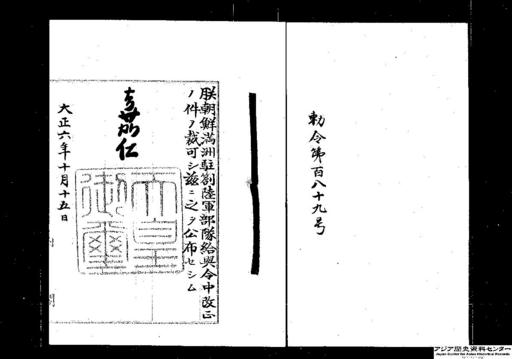 勅令第百八十九号
朕朝鮮満洲駐劄陸軍部隊給与令中改正
ノ件ヲ裁可シ茲ニ之ヲ公布セシム
嘉仁
天皇御璽
大正六年十月十五日
アジア歴史資料センター
Japan Center for Asian Historical Records